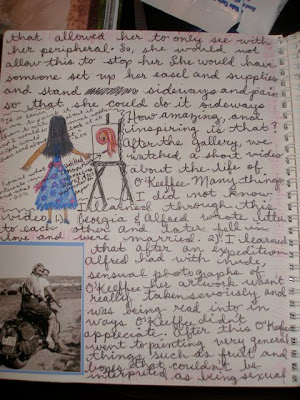 that allowed her to only see with
her peripheral. So, she would not
allow this to stop her. She would have
someone set up her easel and supplies
and stand sideways and paint
so that she could do it sideways
How amazing, and
inspiring is that?
After the gallery, we
watched a short video
about the life of
O'Keeffe. Many things
I did not know
I learned through this
video. 1) Georgia & Alfred wrote letters
to each other and later fell in
love and were married. 2) I learned
that after an expedition
Alfred had with nude,
sensual photographs of
O'Keeffe her artwork wasn't
really taken seriously and
was being read into in
ways O'Keeffe didn't
appreciate. After this O'Keeffe
went to painting very general
things such as fruit and
bones that couldn't be
interpreted as being sexual